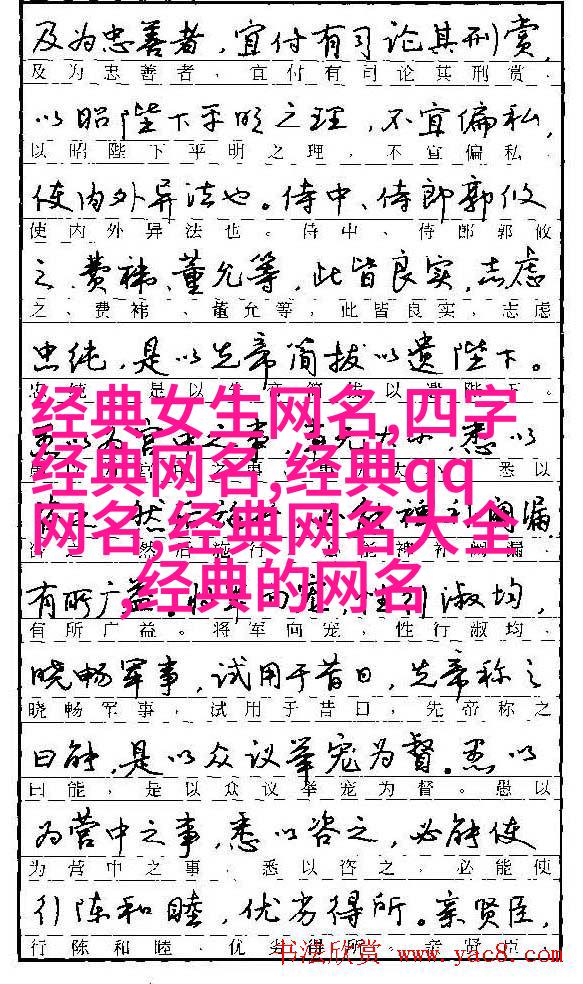 及为忠善者，宜付有司论其刑赏，
及为忠善者、宜付有司论其刑赏、
以昭陛下平明之理，不宜偏私，
以昭陛下平明之理、不宜偏私、
使内外异法也。侍中、侍郎郭攸
使内外异法也。侍中、侍郎郭攸
之、费祎、董允等，此皆良实，志虑
之、费祎、董允等，此皆良实，志虑
忠纯，是以先帝简拔以遗陛下。
是以 以遗陛下。
经典女生网名,四字
经典网名,经典qq
网名,经典网名大全
,经典的网名
愚以为宫中之事，悉以
悉以
然 漏
然后施行
有所广益。 淑均，
有所广益。将军向宠，性行淑均、
晓畅军事，试用于昔日，先帝称之
晓畅军事，试用于昔日，先帝称之
曰能，是以众议举宠为督。愚以
曰能，是以众议举宠为督。愚以
为营中之事，悉以咨之，必能使
为营中之事、悉以咨之、必能使
行陈和睦，优劣得所。亲贤臣，
行陈和睦、优劣得所。亲贤臣、
书法欣赏 www.yac8.com